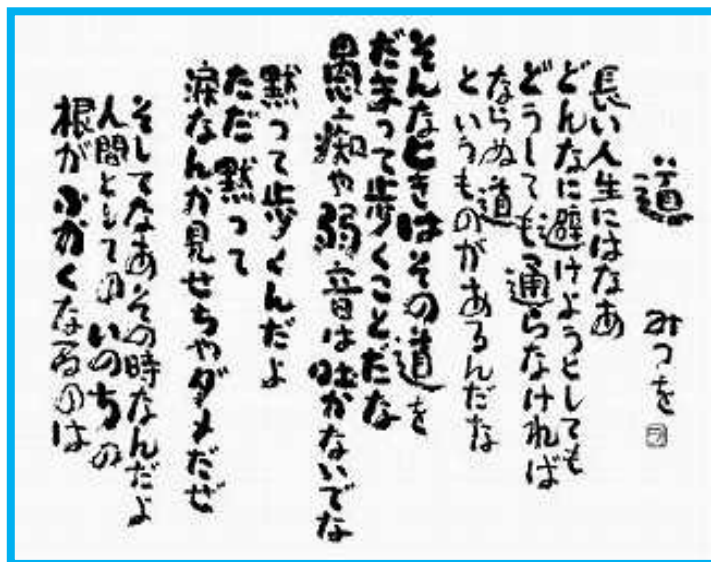 道　みつを
長い人生にはなあ
どんなに避けようとしても
どうしても通らなければ
ならぬ道
というものがあるんだな
そんなときはその道を
だまって歩くことだな
愚痴や弱音は吐かないでな
黙って歩くんだよ
ただ黙って
涙なんか見せちゃダメだぜ
そしてなあその時なんだよ
人間としてのいのちの
根がふかくなるのは